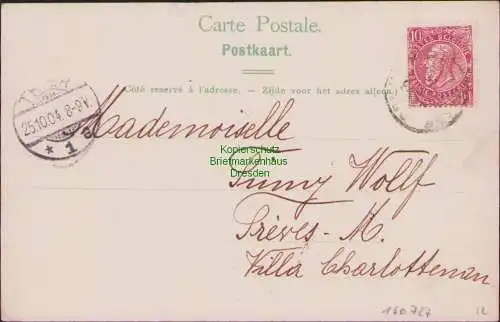 Carte Postale.
Postkaart.
Côté reservé à l'adresse. - Zijde voor het adres alleen
10
25.10.04. 8-9V.
* 1
Mademoiselle
Wolff
Trèves - M.
Villa Charlottenau
Kopierschutz
Briefmarkenhaus
Dresden
160727